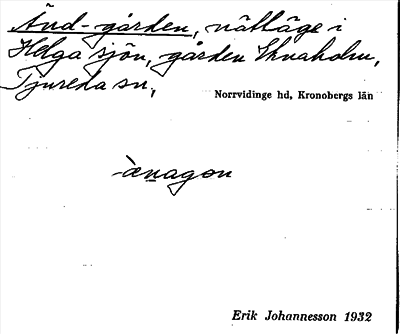 Änd-gården, nätläge i
Helga sjön, gården Ehnaholm,
Tjureda sn,
Norrvidinge hd, Kronobergs län
-ànagon
Erik Johannesson 1932